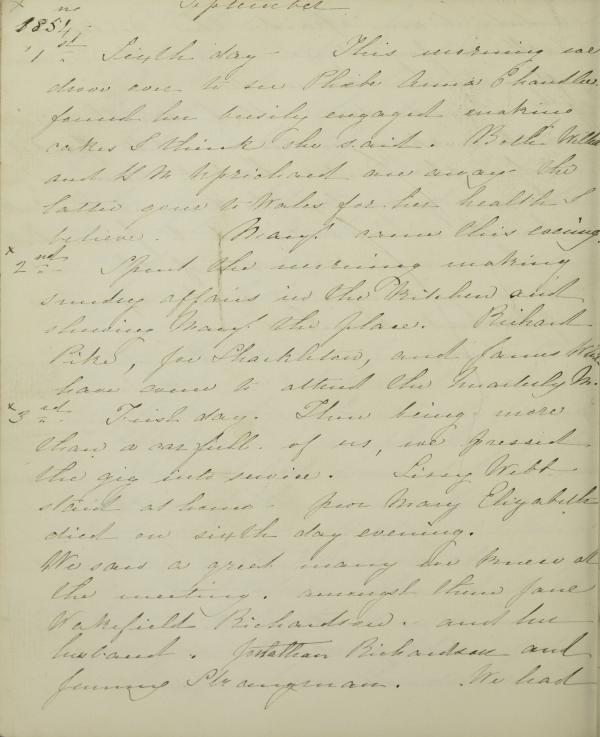 September
1854
1st. Sixth day - This morning we
drove over to see Phebe Anna Chandlee
found her busily engaged making
cakes I think she said. Both Willie
and H M Uprichard are away - the
latter gone to Wales for her health I
believe. Mary F. came this evening.
2nd. Spent the morning making
sundry affairs in the Kitchen and
showing Mary F. the place. Richard
Pike, Joe Shackleton, and James
have come to attend the Quarterly M.
3rd. First day. There being more
than a carfull of us, we pressed
the gig into service. Lissy Webb
staid at home - poor Mary Elizabeth
died on sixth day evening.
We saw a great many we knew at
the meeting. amongst them Jane
Wakefield Richardson. and her
husband. Jonathan Richardson and
Jenny Strangman. We had